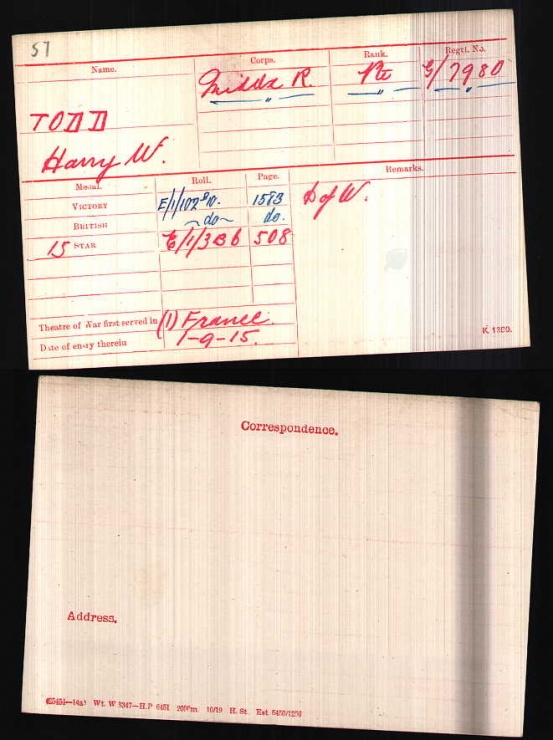 57
Name. Corps. Rank. Regtl. No.
Middx R. Pte G/7980
" "
TODD
Harry W.
Medal. Roll. Page. Remarks.
VICTORY E/1/102 B10. 1583 D of W.
BRITISH ~do~ do.
15 STAR E/1/3 B 6 508
Theatre of War first served in (1) France.
Date of entry therein 1-9-15.
K. 1380.
Correspondence.
Address.
Wt. W 3347—H.P 6451 200m. 10/19 H. St. Est